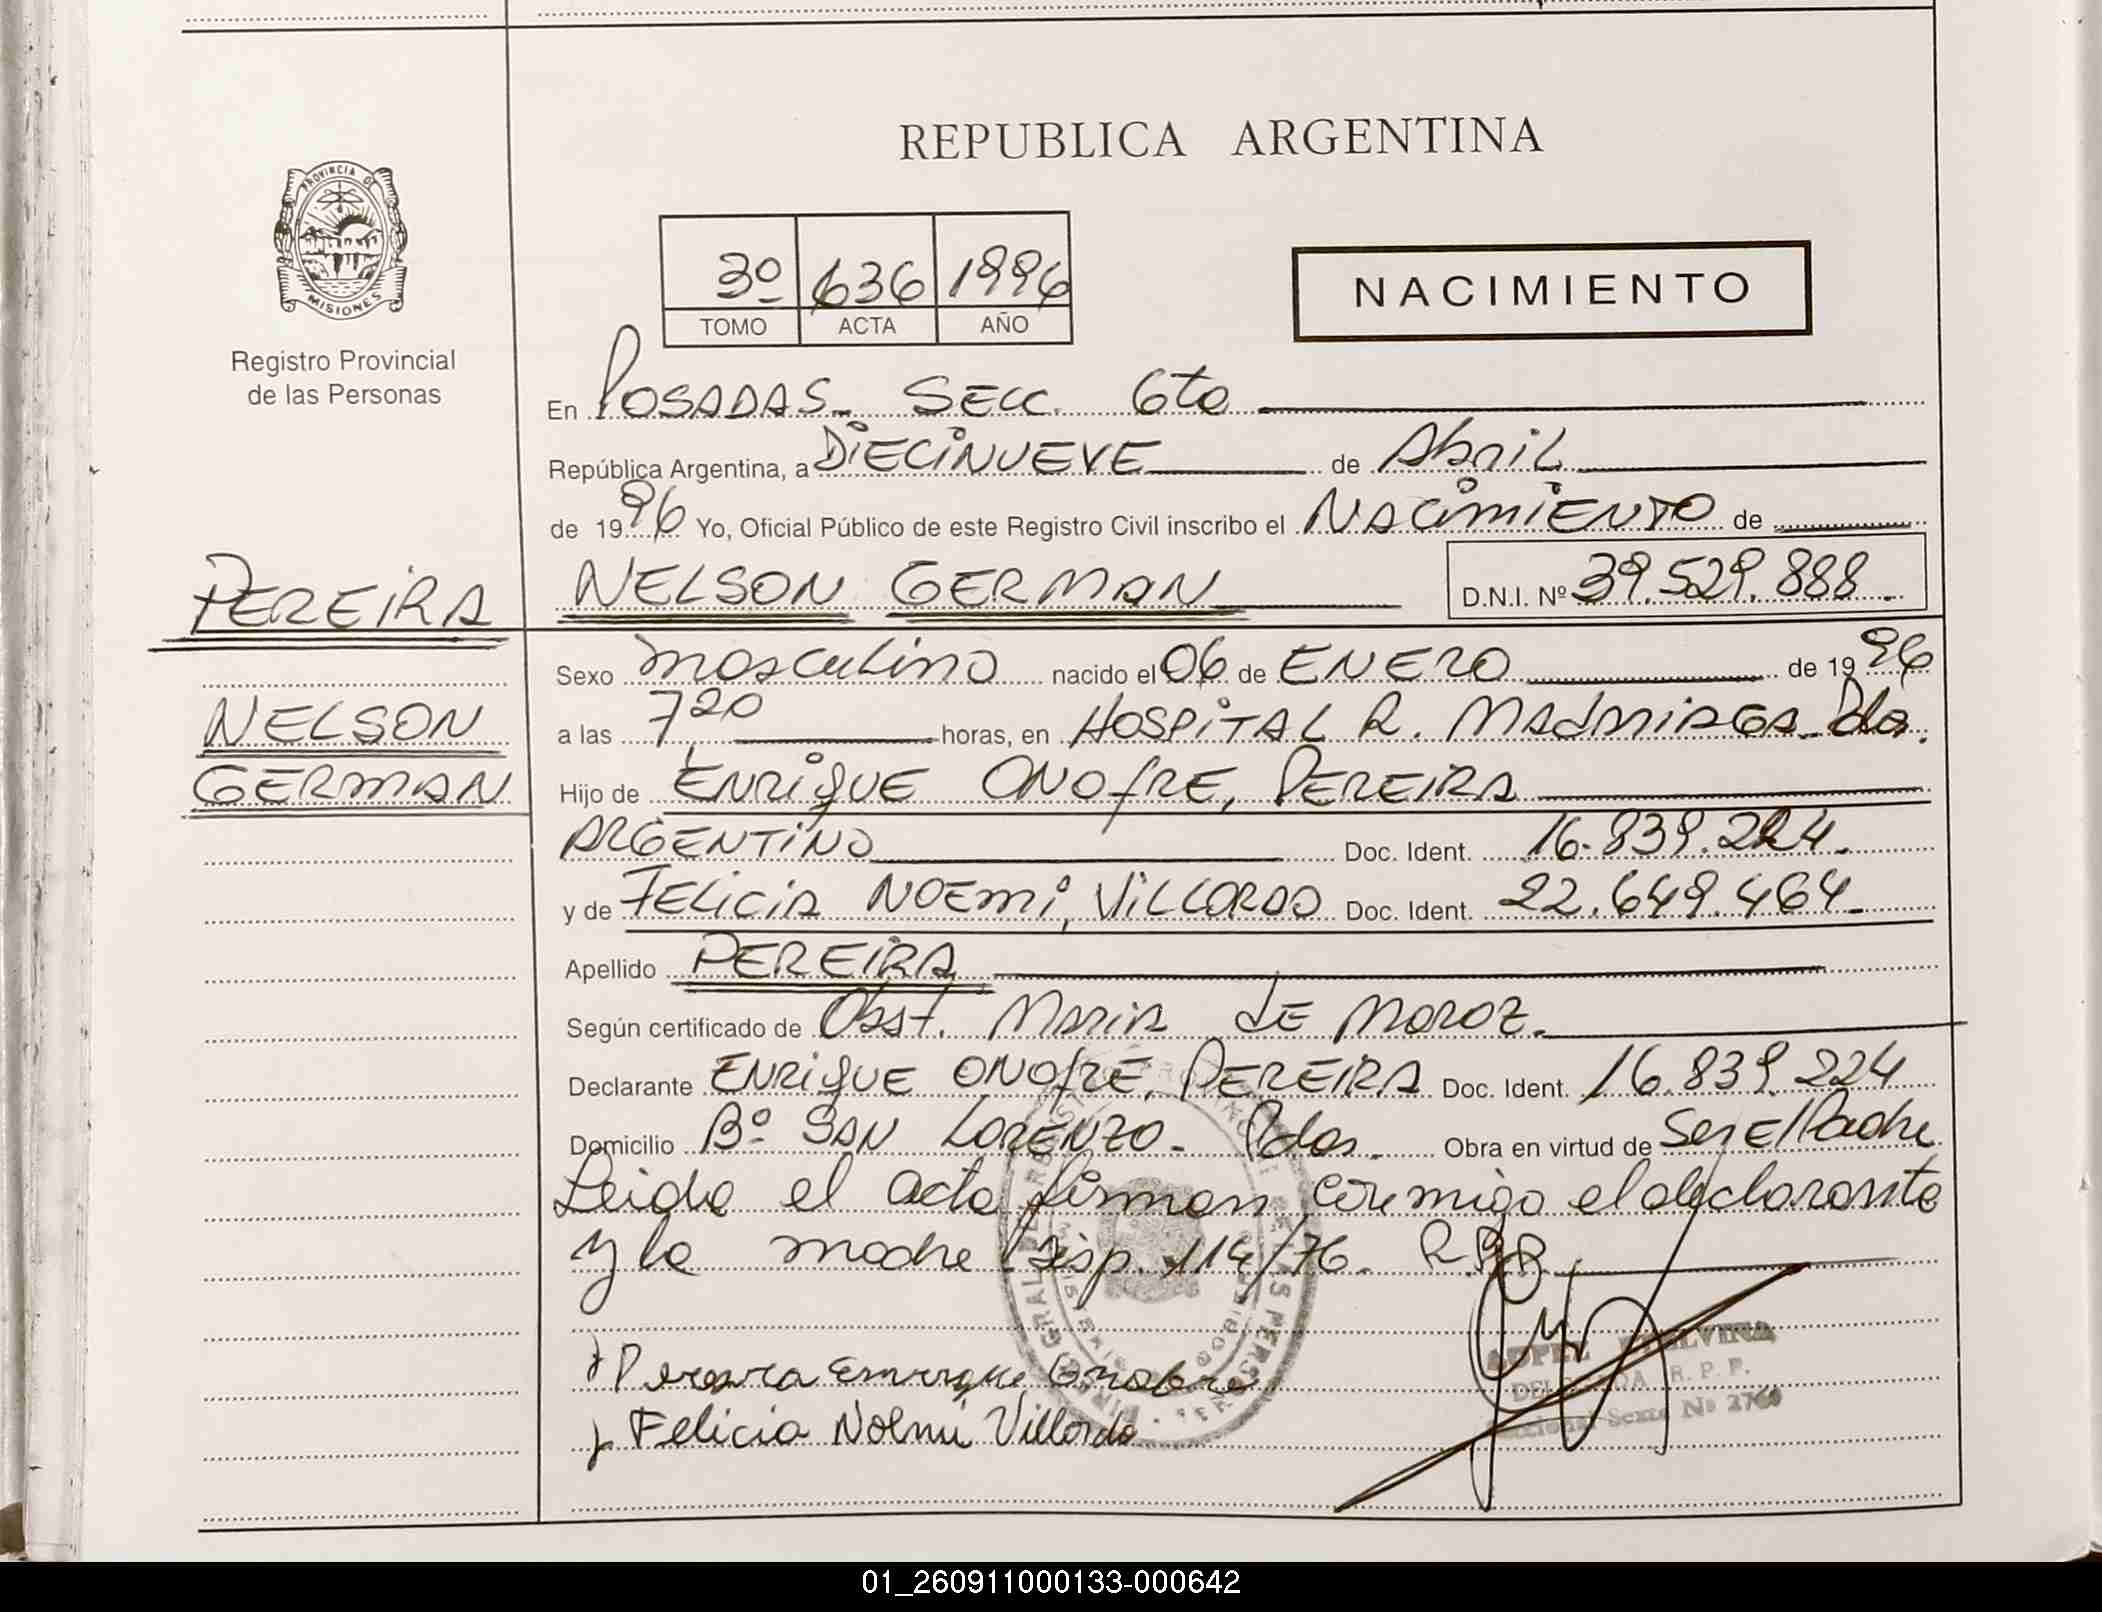 REPUBLICA ARGENTINA
PROVINCIA DE
MISIONES
Registro Provincial
de las Personas
3º 636 1996
TOMO ACTA AÑO
NACIMIENTO
En POSADAS. SECC. 6ta
República Argentina, a DIECINUEVE de Abril
de 1996 Yo, Oficial Público de este Registro Civil inscribo el NACIMIENTO de
PEREIRA
NELSON GERMAN D.N.I. Nº 39.529.888.
Sexo masculino nacido el 06 de ENERO de 1996
NELSON
GERMAN
a las 7,20 horas, en HOSPITAL R. MADARIAGA. Pdas.
Hijo de ENRIQUE ONOFRE, PEREIRA
ARGENTINO Doc. Ident. 16.839.224.
y de FELICIA NOEMI, VILLORDO Doc. Ident. 22.649.464.
Apellido PEREIRA
Según certificado de Obst. MARIA de MOROZ.
Declarante ENRIQUE ONOFRE, PEREIRA Doc. Ident. 16.839.224
Domicilio Bº SAN LORENZO. Pdas. Obra en virtud de Ser el Padre
Leida el acta firman conmigo el declarante
y la madre Disp. 114/76. R.P.P.
Pereira Enrique Onofre
Felicia Noemi Villordo
R. P. P.
Sexta Nº 2760
01_260911000133-000642